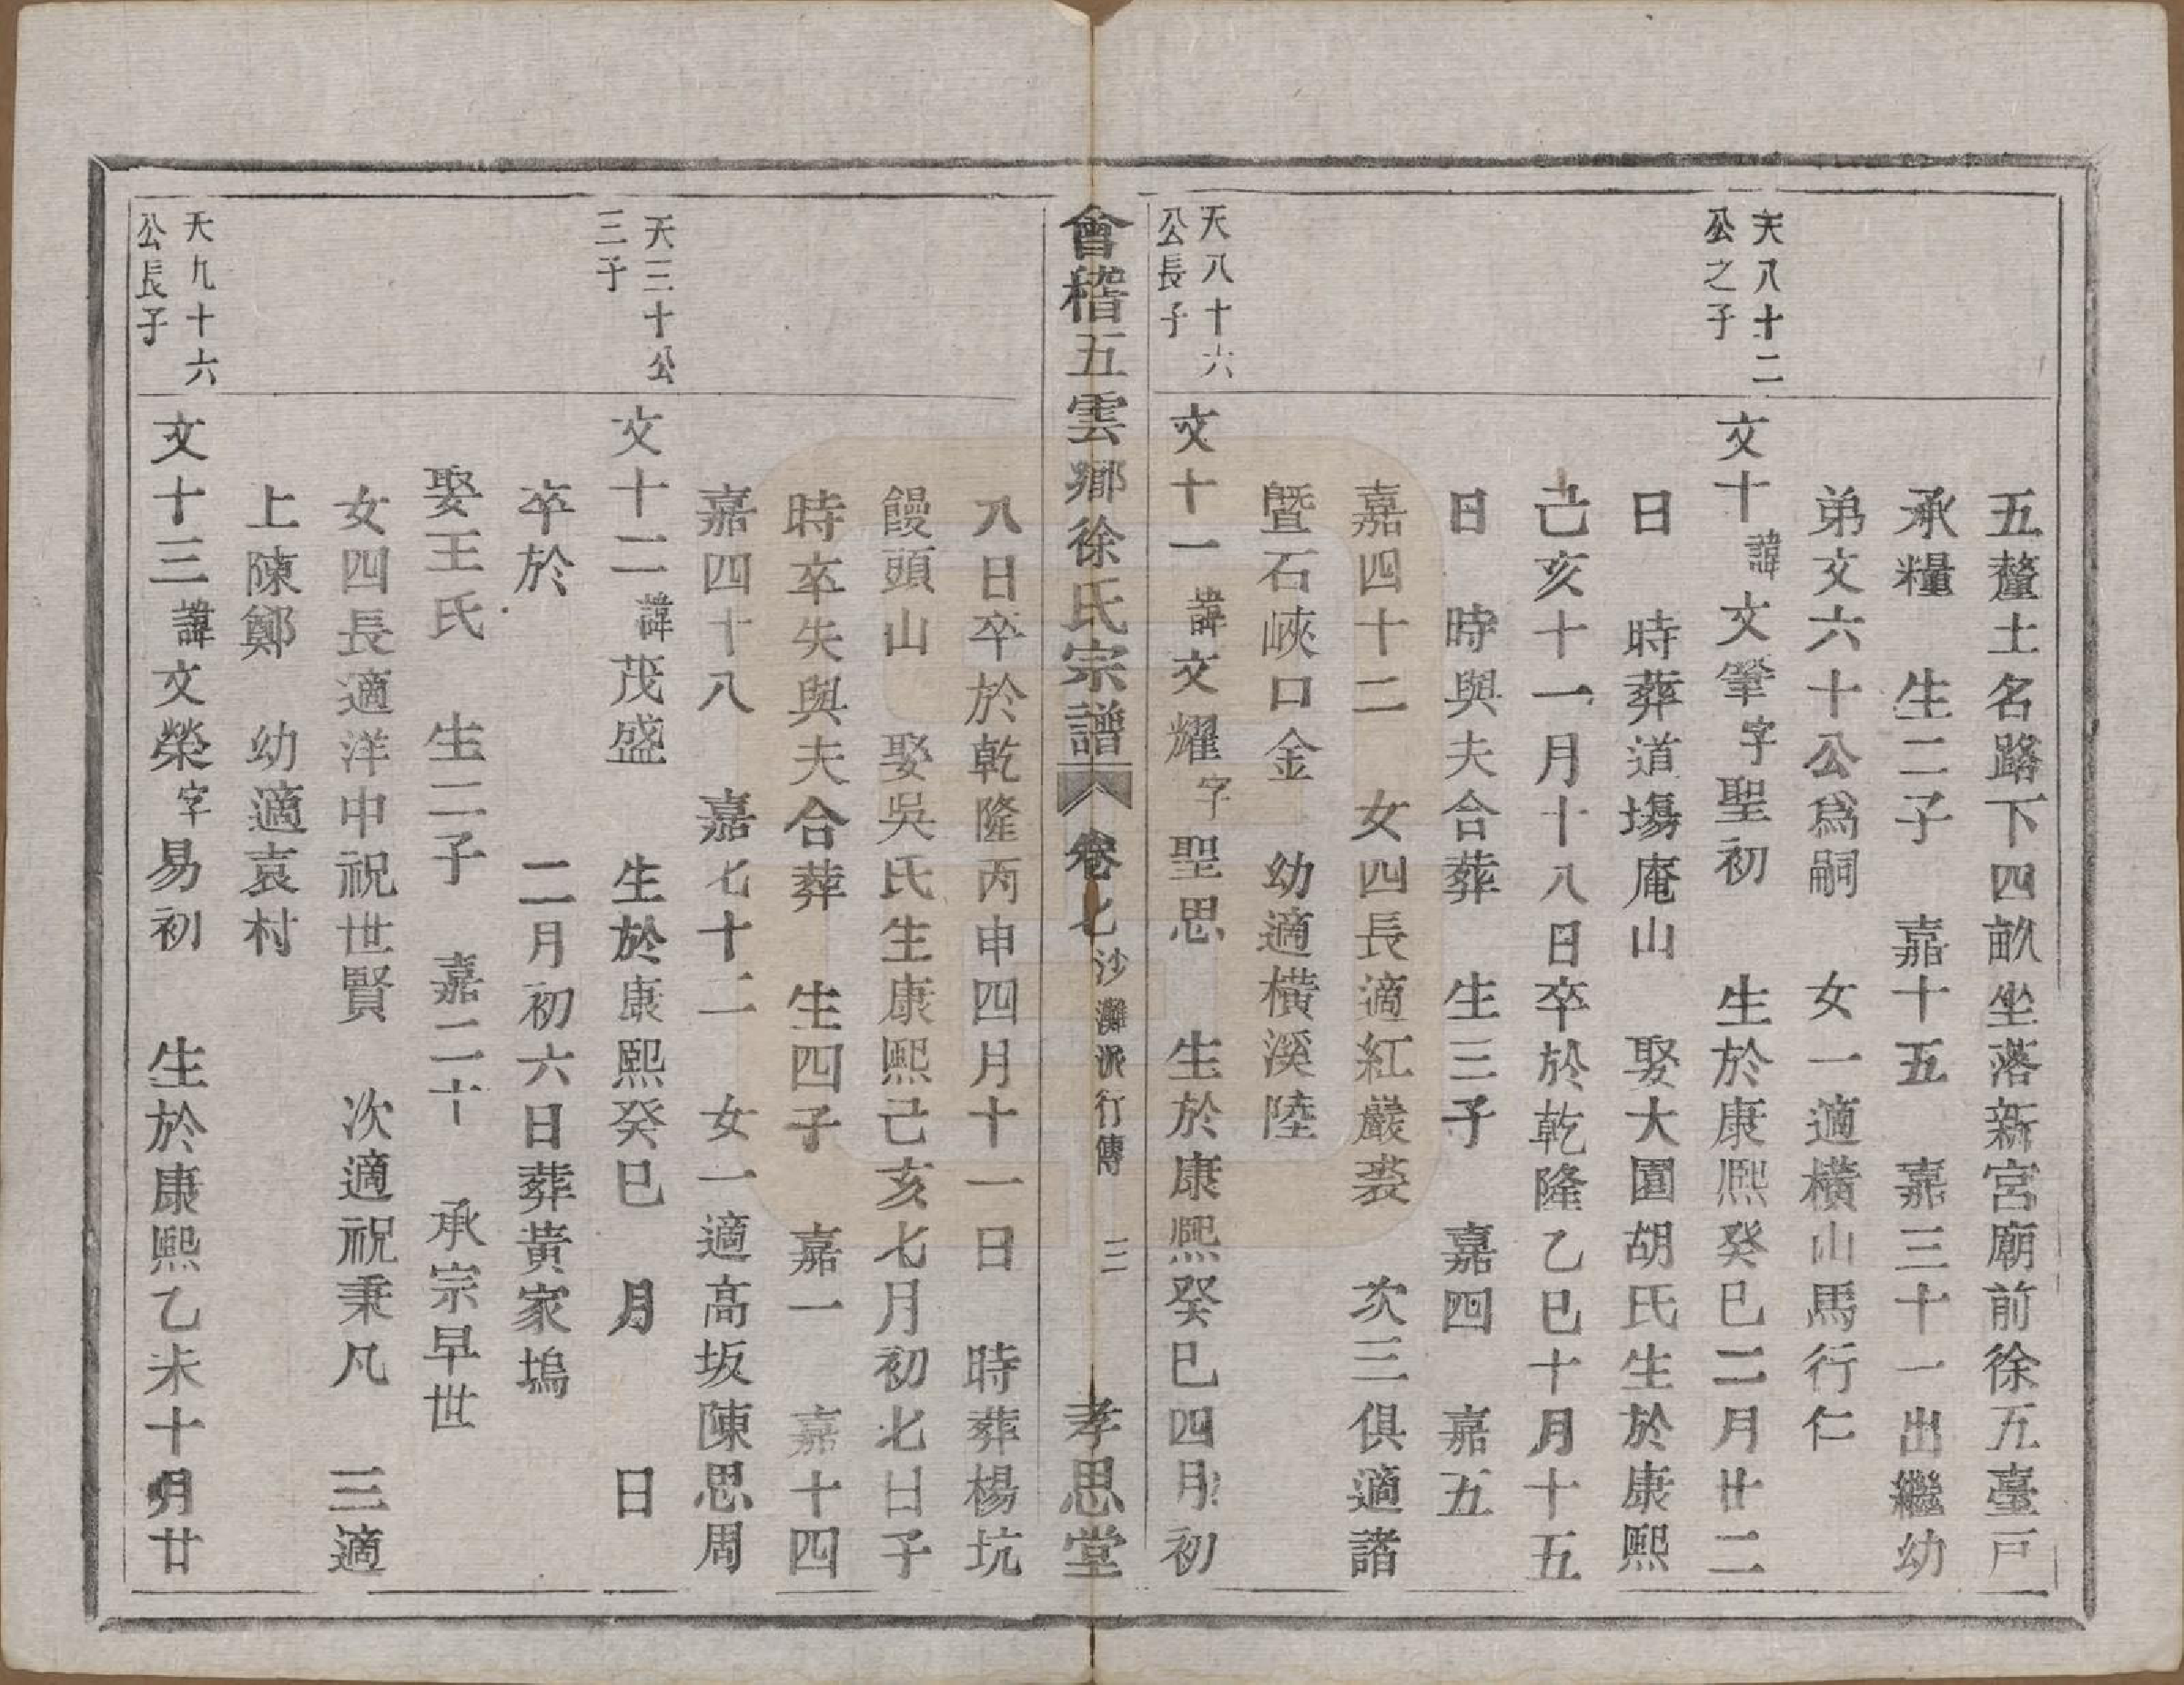 五釐土名路下四畝坐落新宮廟前徐五臺戸
承糧 生二子 嘉十五 嘉三十一出繼幼
弟文六十公爲嗣 女一適橫山馬行仁
天八十二
公之子
文十諱文肈字聖初 生於康熙癸巳二月廿二
日 時葬道塲庵山 娶大園胡氏生於康熙
己亥十一月十八日卒於乾隆乙巳十月十五
日 時與夫合葬 生三子 嘉四 嘉五
嘉四十二 女四長適紅巖裘 次三俱適諸
暨石峽口金 幼適橫溪陸
天八十六
公長子
文十一諱文耀字聖思 生於康熙癸巳四月初
會稽五雲鄉徐氏宗譜 卷七 沙灘派行傳 三 孝思堂
八日卒於乾隆丙申四月十一日 時葬楊坑
饅頭山 娶吳氏生康熙己亥七月初七日子
時卒失與夫合葬 生四子 嘉一 嘉十四
嘉四十八 嘉七十二 女一適高坂陳思周
天三十公
三子
文十二諱茂盛 生於康熙癸巳 月 日
卒於 二月初六日葬黃家塢
娶王氏 生二子 嘉二十 承宗早世
女四長適洋中祝世賢 次適祝秉凡 三適
上陳鄭 幼適袁村
天九十六
公長子
文十三諱文榮字易初 生於康熙乙未十月廿